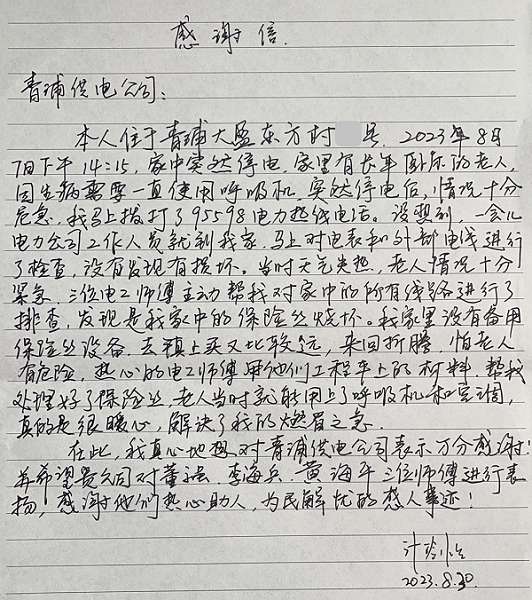 感谢信
青浦供电公司:
本人住于青浦大盈东方村 号, 2023年8月
7日下午14:15, 家中突然停电, 家里有长年卧床的老人,
因生病需要一直使用呼吸机, 突然停电后, 情况十分
危急, 我马上拨打了95598电力热线电话。没想到, 一会儿
电力公司工作人员就到我家, 马上对电表和外部电线进行
了检查, 没有发现有损坏。当时天气炎热, 老人情况十分
紧急, 三位电工师傅主动帮我对家中的所有线路进行了
排查, 发现是我家中的保险丝烧坏。我家里没有备用
保险丝设备, 去镇上买又比较远, 来回折腾, 怕老人
有危险, 热心的电工师傅用他们工程车上的材料, 帮我
处理好了保险丝, 老人当时就能用上了呼吸机和空调,
真的是很暖心, 解决了我的燃眉之急.
在此, 我真心地想对青浦供电公司表示万分感谢!
并希望贵公司对董 、李海兵、黄海平三位师傅进行表
扬, 感谢他们热心助人, 为民解忧的感人事迹!
计
2023.8.30.